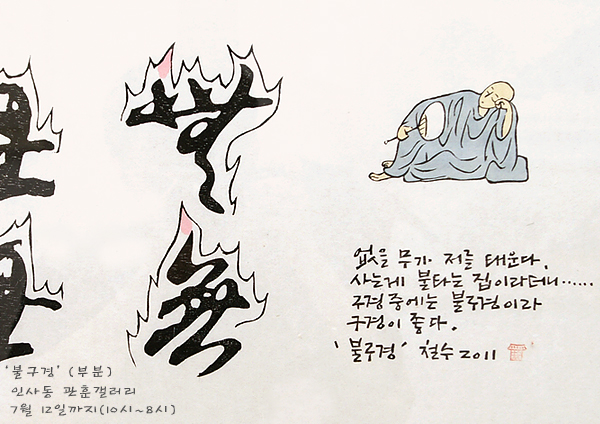 無
無
없을 무가 저를 태운다.
사는게 불타는 집이라더니......
구경 중에는 불구경이라
구경이 좋다.
'불구경' 철수 2011
'불구경' (부분)
인사동 관훈갤러리
7월 12일까지(10시~8시)